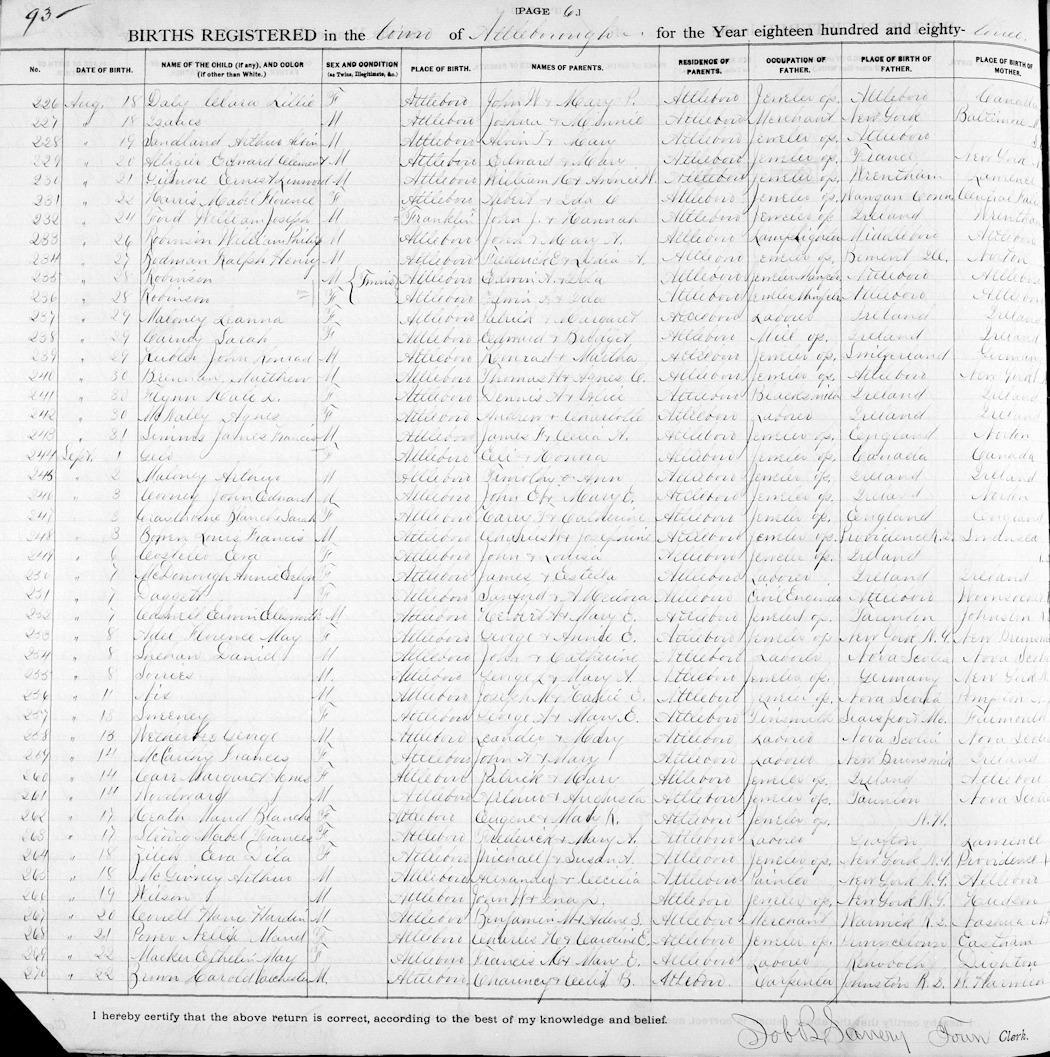 93
[PAGE 6.]
BIRTHS REGISTERED in the town of Attleborough for the Year eighteen hundred and eighty-three
No. DATE OF BIRTH. NAME OF THE CHILD (if any), AND COLOR (if other than White.) SEX AND CONDITION (as Twins, Illegitimate, &c.) PLACE OF BIRTH. NAMES OF PARENTS. RESIDENCE OF PARENTS. OCCUPATION OF FATHER. PLACE OF BIRTH OF FATHER. PLACE OF BIRTH OF MOTHER.
226 Aug. 18 Daly Clara Lillie F Attleboro John W & Mary P. Attleboro Jeweler op. Attleboro Canada
227 " 18 Isaacs M Attleboro Joshua & Minnie Attleboro Merchant New York Baltimore
228 " 19 Sandland Arthur Alvin M Attleboro Alvin T & Mary Attleboro Jeweler op. Attleboro
229 " 20 Edward Clement M Attleboro Edward & Mary Attleboro Jeweler op. France New York
230 " 21 Gilmore Ernest Kenwood M Attleboro William H & Annie W. Attleboro Jeweler op. Wrentham
231 " 22 Harris Mabel Florence F Attleboro & Ida Attleboro Jeweler op. Conn Central Falls
232 " 24 Ford William Joseph M Franklin John J. & Hannah Attleboro Jeweler op Ireland Wrentham
233 " 26 Robinson William Philip M Attleboro John & Mary A. Attleboro Lamplighter Middleboro Attleboro
234 " 27 Rodman Ralph Henry M Attleboro Frederick E & A. Attleboro Jeweler op. Bement Ill. Norton
235 " 28 Robinson M Twins Attleboro Edwin A & Attleboro Attleboro Attleboro
236 " 28 Robinson F Attleboro Attleboro Attleboro Attleboro
237 " 29 Maloney Leanna F Attleboro Patrick & Margaret Attleboro Laborer Ireland Ireland
238 " 29 Carney Sarah F Attleboro Edward & Bridget Attleboro Mill op. Ireland Ireland
239 " 29 John Konrad M Attleboro Konrad & Martha Attleboro Jeweler op. Switzerland Germany
240 " 30 Brennan Matthew M Attleboro Thomas H & Agnes C. Attleboro Jeweler op. Attleboro New York
241 " 30 Flynn Kate L. F Attleboro Dennis A & Attleboro Blacksmith Ireland Ireland
242 " 30 McNally Agnes F Attleboro Andrew & Charlotte Attleboro Laborer Ireland Ireland
243 " 31 Simms James Francis M Attleboro James F & Celia A. Attleboro Jeweler op. England Norton
244 Sept. 1 F Attleboro Attleboro Jeweler op. Canada Canada
245 " 2 Maloney Arthur M Attleboro Timothy & Ann Attleboro Jeweler op. Ireland Ireland
246 " 3 Cooney John Edward M Attleboro John E & Mary E. Attleboro Jeweler op. Ireland Norton
247 " 3 Blanche Sarah F Attleboro Harry F & Catherine Attleboro Jeweler op. England England
248 " 3 Bowen Louis Francis M Attleboro & Josephine Attleboro Jeweler op. Providence R.I. Swansea
249 " 6 Costello Eva F Attleboro John & Louisa Attleboro Jeweler op. Ireland
250 " 7 McDonough Annie F Attleboro James & Estella Attleboro Laborer Ireland Ireland
251 " 7 Daggett F Attleboro Sanford & A Medora Attleboro Civil Engineer Attleboro Woonsocket
252 " 7 Edwin Ellsworth M Attleboro Herbert A & Mary E. Attleboro Jeweler op. Taunton Johnston
253 " 8 Adel Florence May F Attleboro George & Annie E. Attleboro Jeweler op. New York N.Y. New Brunswick
254 " 8 Sheehan Daniel M Attleboro John & Catherine Attleboro Laborer Nova Scotia Nova Scotia
255 " 8 M Attleboro George L & Mary A. Attleboro Jeweler op. Germany New York
256 " 11 Nix M Attleboro Joseph N & Cassie E. Attleboro Jeweler op. Nova Scotia
257 " 13 Sweeney F Attleboro George A & Mary E. Attleboro Tinsmith Searsport Me.
258 " 13 George M Attleboro Leander & Mary Attleboro Laborer Nova Scotia Nova Scotia
259 " 14 McCarthy Frances F Attleboro John A & Mary Attleboro Laborer New Brunswick Ireland
260 " 14 Carr Margaret F Attleboro Patrick & Mary Attleboro Jeweler op. Ireland Attleboro
261 " 14 Woodward M Attleboro & Augusta Attleboro Jeweler op. Taunton Nova Scotia
262 " 17 Heath Maud Blanche F Attleboro Eugene & Mary K. Attleboro Jeweler op. N.H.
263 " 17 Mabel Frances F Attleboro Frederick & Mary A. Attleboro Laborer Lawrence
264 " 18 Zilch Eva Lila F Attleboro Michael J & Susan A. Attleboro Jeweler op. New York N.Y. Providence
265 " 18 McGivney Arthur M Attleboro Alexander & Cecelia Attleboro Painter New York N.Y. Attleboro
266 " 19 Wilson M Attleboro John H & Attleboro Jeweler op. New York N.Y. Hudson
267 " 20 Cornell Harry Hardin M Attleboro Benjamin M & S. Attleboro Merchant Warwick R.I. Nashua
268 " 21 Power Nellie Maud F Attleboro Charles H & Caroline E. Attleboro Jeweler op. Provincetown Eastham
269 " 22 May F Attleboro Francis M & Mary E. Attleboro Laborer Randolph Dighton
270 " 22 Brown Harold M. Attleboro Chauncy & B. Attleboro Carpenter Johnston R.I.
I hereby certify that the above return is correct, according to the best of my knowledge and belief.
Job B Savery Town Clerk.